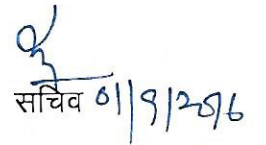 सचिव 01/9/2016